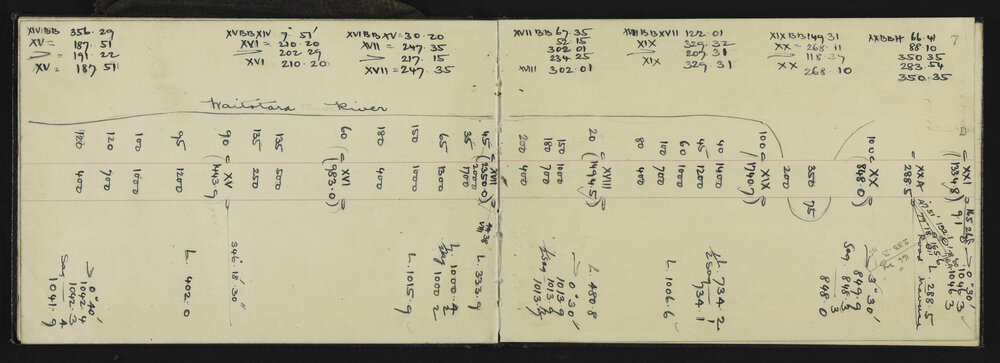 XIV BB 356.29
XV = 187.51
> 191.22
XV = 187.51
XVBBXIV 7.51
XVI = 210.20
> 202.29
XVI 210.20
XVIBBXV = 30.20
XVII = 247.35
> 217.15
XVII = 247.35
XVII BB 67.35
52.15
302.01
234.25
XVIII 302.01
XVIII BBXVII 122.01
XIX 329.32
207.31
XIX 329 31
XIXBB 149.31
XX = 268.11
118.37
XX 268.10
XXBBH 66.41
88.10
350 35
283.54
350.35
7
Waitotara River
100 400
120 700
100 1000
95 1200
90 = XV
135 250
135 500
60 (XVI 983.0)
180 400
150 1000
65 1300
35 1700
45 (XVII 2350.0)
200 400
180 700
150 1000
20 (XVIII 1494.5)
80 400
100 700
60 1000
45 1200
40 1400
100 (XIX 1740.7)
200
350 75
100 = XX (848.0)
XXA 288.5
= XXI (1334.8)
> 0°40'
1042.4
1042.3
Sag 4
1041.9
L. 402.0
346°18'30"
L. 1015.9
L. 1000.4
Sag 1000.2
L. 333.9
> 0°30'
1013.9
1013.9
Sag 1013.7
L. 480.8
L. 1006.6
L. 734.2
Sag 1
734.1
> 3°30'
849.9
848.3
Sag 3
848 0
L. 288.5
Road traverse
> 0°30'
1046 3
1046 3